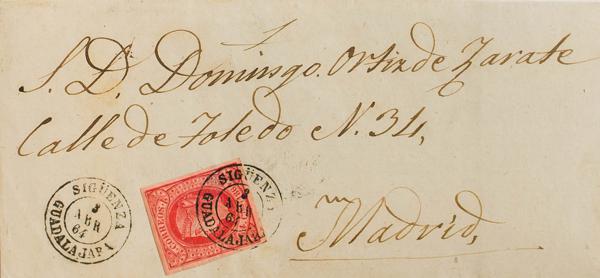 S. D. Domingo Ortiz de Zarate
Calle de Toledo N. 34,
Madrid,
SIGÜENZA
3
ABR
64
GUADALAJARA
SIGÜENZA
3
ABR
64
GUADALAJARA